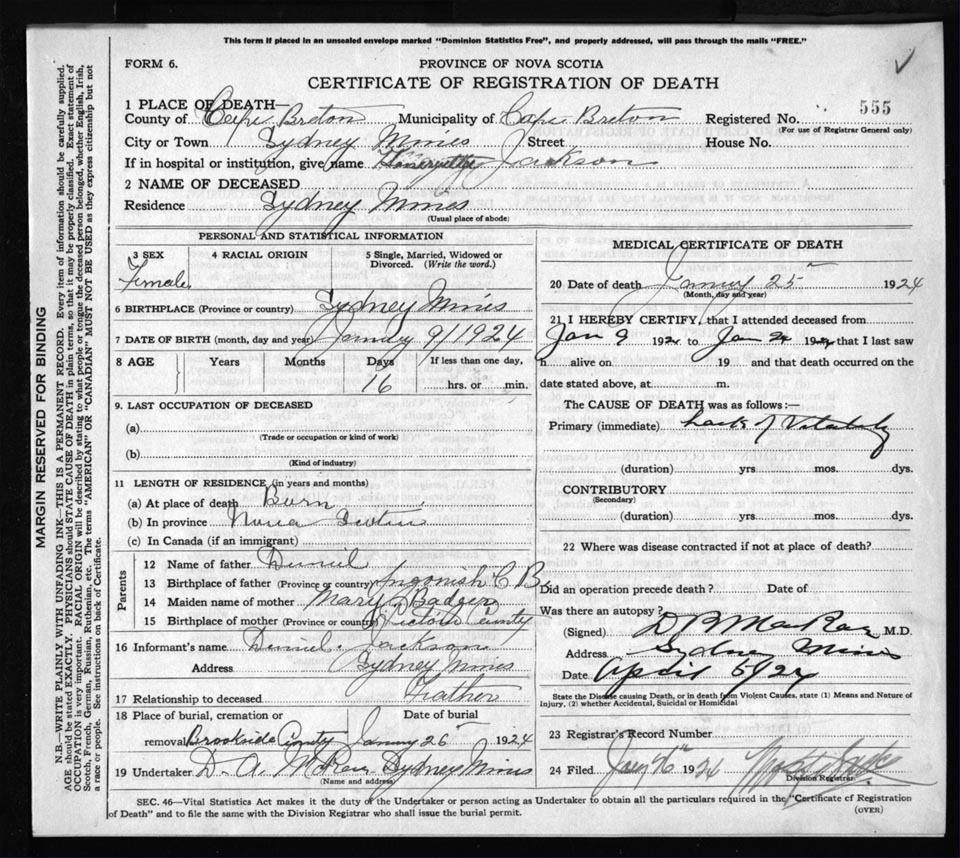 This form if placed in an unsealed envelope marked "Dominion Statistics Free", and properly addressed, will pass through the mails "FREE."
FORM 6.
PROVINCE OF NOVA SCOTIA
CERTIFICATE OF REGISTRATION OF DEATH
555
1 PLACE OF DEATH—
County of Cape Breton Municipality of Cape Breton Registered No.
(For use of Registrar General only)
City or Town Sydney Mines Street House No.
If in hospital or institution, give name Jackson
2 NAME OF DECEASED
Residence Sydney Mines
(Usual place of abode)
PERSONAL AND STATISTICAL INFORMATION
3 SEX 4 RACIAL ORIGIN 5 Single, Married, Widowed or Divorced. (Write the word.)
Female
6 BIRTHPLACE (Province or country) Sydney Mines
7 DATE OF BIRTH (month, day and year) January 9/1924
8 AGE Years Months Days If less than one day,
16 hrs. or min.
9. LAST OCCUPATION OF DECEASED
(a)
(Trade or occupation or kind of work)
(b)
(Kind of industry)
11 LENGTH OF RESIDENCE (in years and months)
(a) At place of death Born
(b) In province Nova Scotia
(c) In Canada (if an immigrant)
Parents
12 Name of father Daniel
13 Birthplace of father (Province or country) Ingonish C B
14 Maiden name of mother Mary Badger
15 Birthplace of mother (Province or country) Victoria County
16 Informant's name Daniel Jackson
Address Sydney Mines
17 Relationship to deceased Father
18 Place of burial, cremation or removal Brookside County Date of burial January 26 1924
19 Undertaker D. A. Sydney Mines
(Name and address)
MEDICAL CERTIFICATE OF DEATH
20 Date of death January 25 1924
(Month, day and year)
21 I HEREBY CERTIFY, that I attended deceased from
Jan 9 1924 to Jan 24 1924 that I last saw
h alive on 19 and the death occurred on the
date stated above, at m.
The CAUSE OF DEATH was as follows:—
Primary (immediate) Lack of Vitality
(duration) yrs mos. dys.
CONTRIBUTORY
(Secondary)
(duration) yrs mos. dys.
22 Where was disease contracted if not at place of death?
Did an operation precede death? Date of
Was there an autopsy?
(Signed) D B MacRae M.D.
Address Sydney Mines
Date April 5/24
State the Disease causing Death, or in death from Violent Causes, state (1) Means and Nature of
Injury, (2) whether Accidental, Suicidal or Homicidal
23 Registrar's Record Number
24 Filed Jany 26th 1924
Division Registrar
SEC. 46—Vital Statistics Act makes it the duty of the Undertaker or person acting as Undertaker to obtain all the particulars required in the "Certificate of Registration
of Death" and to file the same with the Division Registrar who shall issue the burial permit.
(OVER)
MARGIN RESERVED FOR BINDING
N.B.—WRITE PLAINLY WITH UNFADING INK—THIS IS A PERMANENT RECORD. Every item of information should be carefully supplied.
AGE should be stated EXACTLY. PHYSICIANS should STATE CAUSE OF DEATH in plain terms, so that it may be properly classified. Exact statement of
OCCUPATION is very important. RACIAL ORIGIN will be described by stating to what people or tongue the deceased person belonged, whether English, Irish,
Scotch, French, German, Russian, Ruthenian, etc. The terms "AMERICAN" or "CANADIAN" MUST NOT BE USED as they express citizenship but not
a race or people. See instructions on back of Certificate.